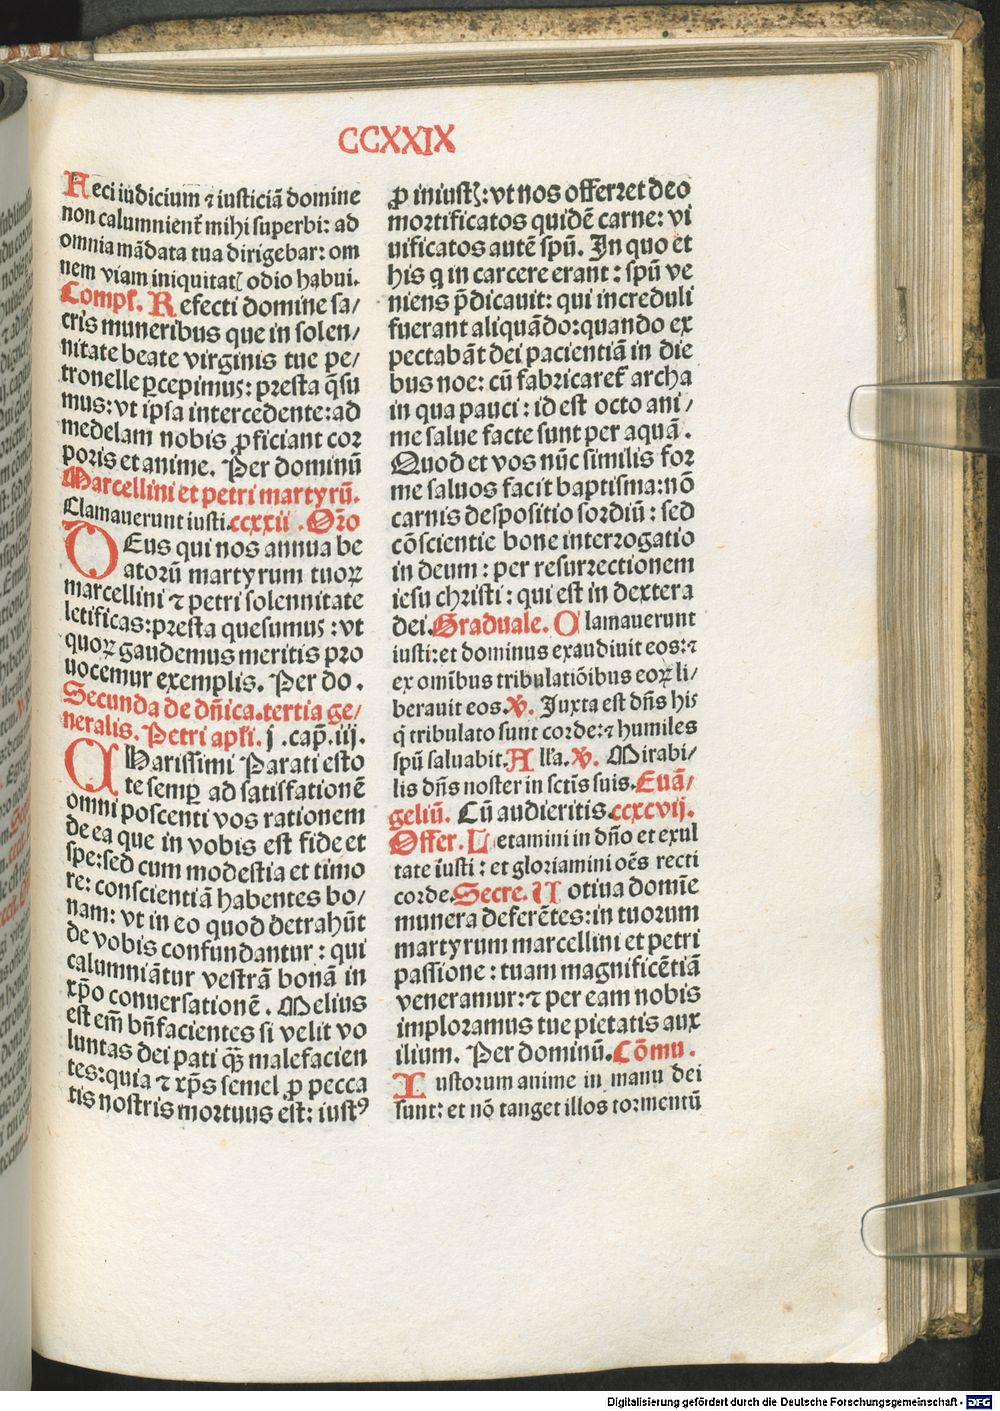 CCXXIX
Feci iudicium ⁊ iusticiā domine
non calumnient᷑ mihi superbi: ad
omnia mādata tua dirigebar: om
nem viam iniquitatꝭ odio habui.
Compƚ. Refecti domine sa/
cris muneribus que in solen/
nitate beate virginis tue pe/
tronelle ꝑcepimus: presta q̄su
mus: vt ipsa intercedente: ad
medelam nobis ꝓficiant cor
poris et anime. Per dominū
Marcellini et petri martyrū.
Clamauerunt iusti. ccxxii . Oro
DEus qui nos annua be
atorū martyrum tuoꝝ
marcellini ⁊ petri solennitate
letificas: presta quesumus : vt
quoꝝ gaudemus meritis pro
uocemur exemplis. Per do.
Secunda de dn̄ica. tertia ge/
neralis. Petri apƚi. j .cap̄. iij.
CHarissimi Parati esto
te semꝑ ad satisfationē
omni poscenti vos rationem
de ea que in vobis est fide et
spe: sed cum modestia et timo
re: conscientiā habentes bo/
nam: vt in eo quod detrahūt
de vobis confundantur : qui
calumniātur vestrā bonā in
xp̄o conuersationē. Melius
est em̄ bn̄facientes si velit vo
luntas dei pati qꝫ malefacien
tes: quia ⁊ xp̄s semel ꝓ pecca
tis nostris mortuus est: iustꝰ
ꝓ iniustꝭ: vt nos offerret deo
mortificatos quidē carne: vi
uificatos autē spū. In quo et
his q in carcere erant : spū ve
niens p̄dicauit: qui increduli
fuerant aliquādo: quando ex
pectabāt dei pacientiā in die
bus noe: cū fabricaret᷑ archa
in qua pauci : id est octo ani/
me salue facte sunt per aquā .
Quod et vos nūc similis for
me saluos facit baptisma: nō
carnis despositio sordiū : sed
cōscientie bone interrogatio
in deum : per resurrectionem
iesu christi : qui est in dextera
dei. Graduale. Clamauerunt
iusti: et dominus exaudiuit eos: ⁊
ex omībus tribulatiōibus eoꝝ li/
berauit eos. ℣. Juxta est dn̄s his
q̇ tribulato sunt corde: ⁊ humiles
spū saluabit. Alƚa. ℣. Mirabi/
lis dn̄s noster in sctīs suis. Euā/
geliū. Cū audieritis. ccxcvij.
Offer. Letamini in dn̄o et exul
tate iusti : et gloriamini oēs recti
corde. Secre. Uotiua domīe
munera deferētes: in tuorum
martyrum marcellini et petri
passione : tuam magnificētiā
veneramur: ⁊ per eam nobis
imploramus tue pietatis aux
ilium. Per dominū. Cōmu .
Iustorum anime in manu dei
sunt: et nō tanget illos tormentū
Digitalisierung gefördert durch die Deutsche Forschungsgemeinschaft - DFG